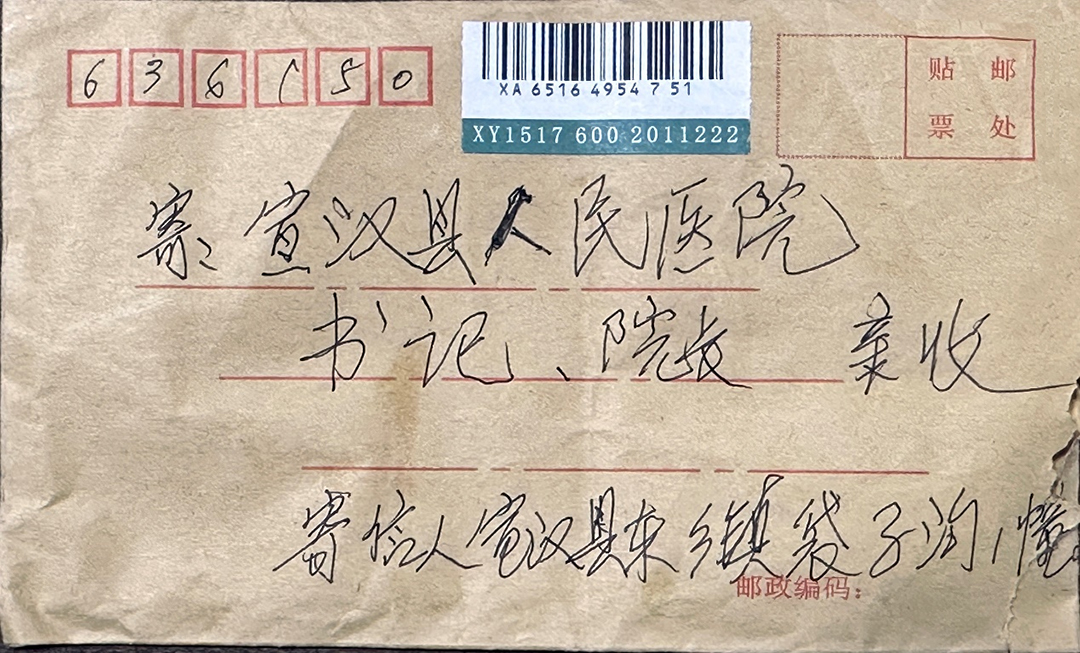 636150
XA 6516 4954 7 51
XY1517 600 2011222
贴 邮
票 处
寄:宣汉县人民医院
书记、院长 亲收
寄信人宣汉县东乡镇袋子沟
邮政编码: